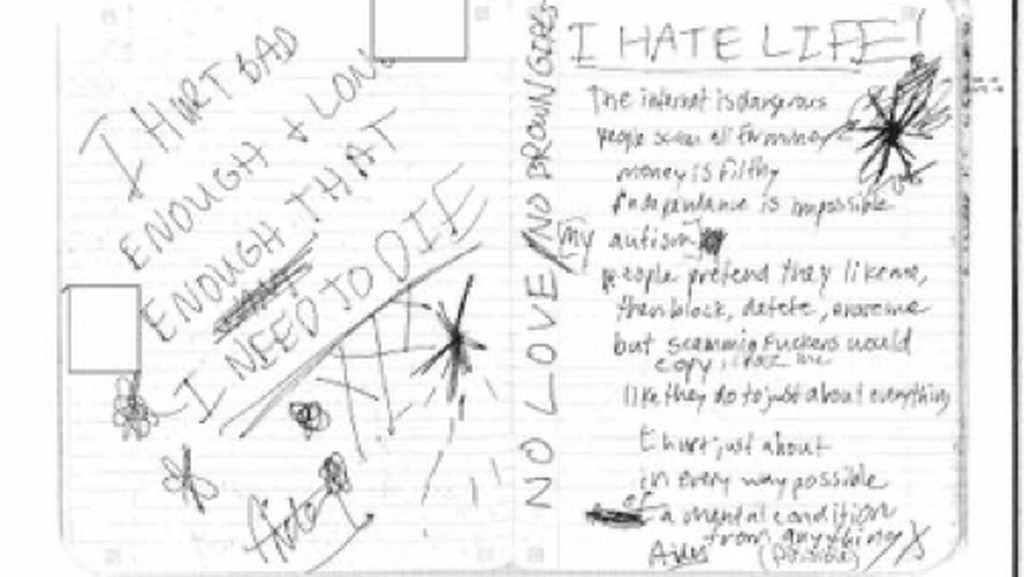 I HURT BAD
ENOUGH + LONG
ENOUGH THAT
I NEED TO DIE
NO LOVE / NO BROWN GIRLS
I HATE LIFE!
The internet is dangerous
people scam all for money
money is filthy
independance is impossible
[My autism]
people pretend they like me,
then block, delete,
but scamming fuckers would
copy
like they do to just about everything
I hurt just about
in every way possible
of a mental condition
from anything
(possible)